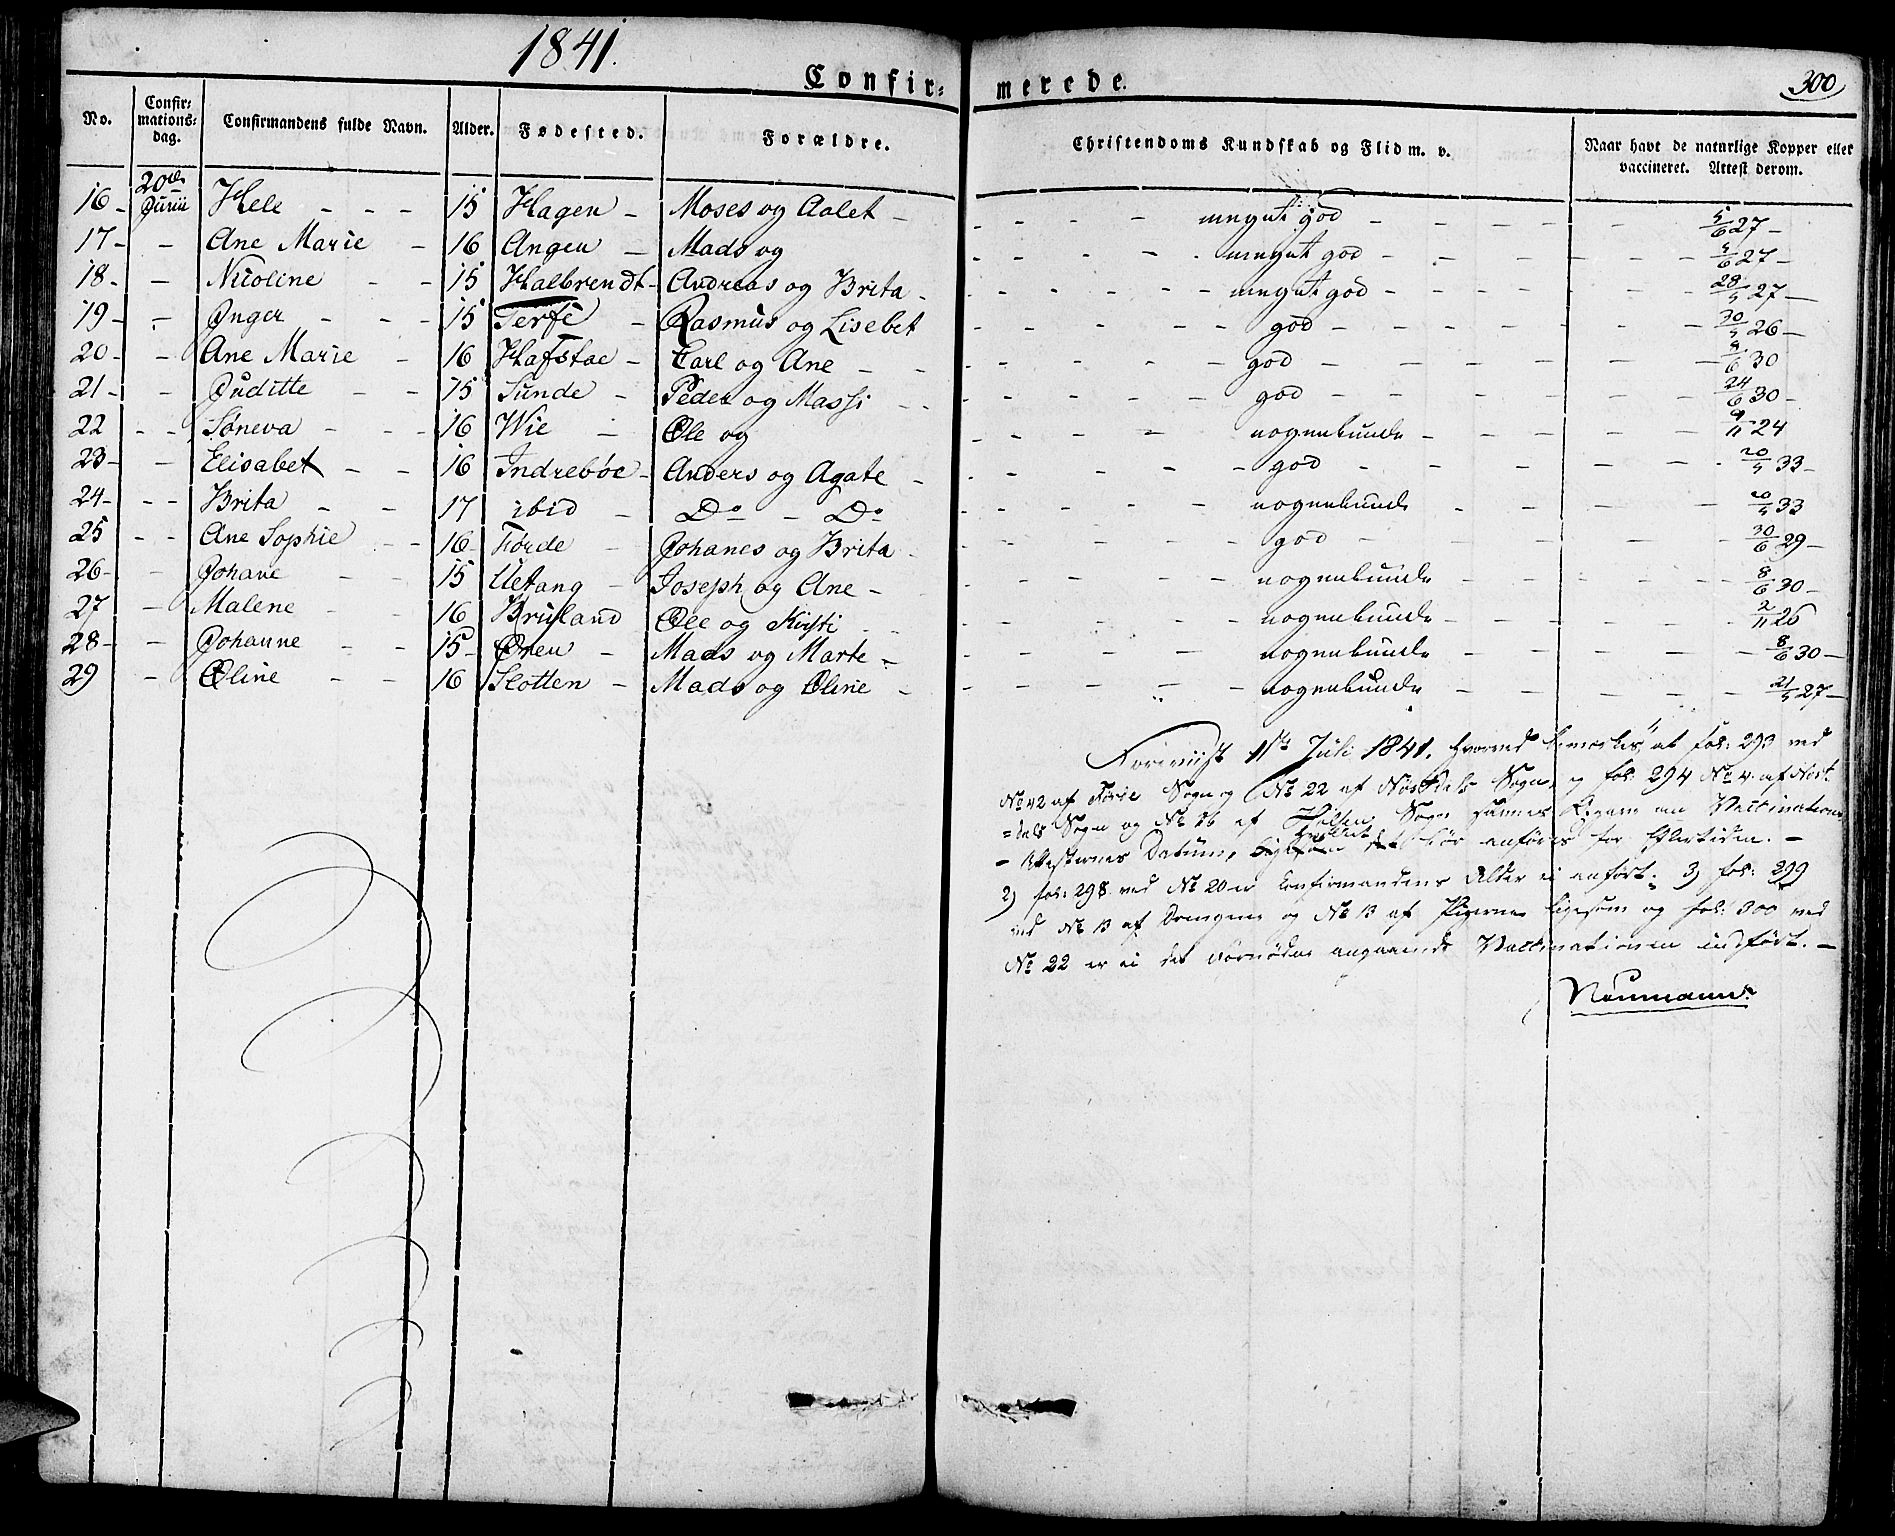 1841.
Confir= merede.
300
No. Confir=mations=dag. Confirmandens fulde Navn. Alder. Fødested. Forældre. Christendoms Kundskab og Flid m. v. Naar havt de naturlige Kopper eller vaccineret. Attest derom.
16 - 20de Junii Hele - - - 15 Hagen - Moses og Aalet - - - - meget god - - - - 5/6 27 -
17 - - Ane Marie - 16 Angen - Mads og - - - - meget god - - - - 4/6 27 -
18 - - Nicoline - - 15 Halbrendt - Andreas og Brita - - - - meget god - - - - 28/5 27 -
19 - - Inger - - - 15 Terfe - Rasmus og Lisebet - - - - god - - - - 30/5 26 -
20 - - Ane Marie - 16 Hafstae - Carl og Ane - - - - god - - - - 6 30
21 - - Juditte - - 15 Sunde - Peder og Massi - - - - god - - - - 24/6 30 -
22 - - Søneva - - 16 Wie - Ole og - - - - nogenlunde - - - - 9/11 24
23 - - Elisabet - - 16 Indrebøe - Anders og Agate - - - - god - - - - 20/5 33 -
24 - - - Brita - - 17 ibid - Do - Do - - - - nogenlunde - - - - 20/5 33
25 - - Ane Sophie - - 16 - Førde - Johanes og Brita - - - - god - - - - 30/6 29 -
26 - - Johane - - 15 Uetang - Joseph og Ane - - - - nogenlunde - - - - 8/6 30 -
27 - Malene - - 16 Bruland Ole og Kirsti - - - - nogenlunde - - - - 2/11 26
28 - - Johanne - - 15 - Øren - Mads og Marte - - - - nogenlunde - - - - 8/6 30 -
29 - Oline - - 16 Slotten - Mads og Oline - - - - nogenlunde - - - - 21/5 27 -
11te Juli 1841, hvorved bemærkes, at fol: 293 ved
No 42 af Førde Sogn og No 22 af Nøstdals Sogn, og fol: 294 No 4 af Nøst
=dals Sogn og No 16 af Holsen Sogn savnes Vaccinations
- Attesternes Datum, hvilket bør anføres for Eftertiden. -
2) fol: 298 ved No 20 er Confirmandens Alder ei anført; 3) fol: 299
ved No 13 af Drengene og No 13 af Pigerne ligesom og fol: 300 ved
No 22 er ei det fornødne angaaende Vaccinationen indført. -
Neumann.